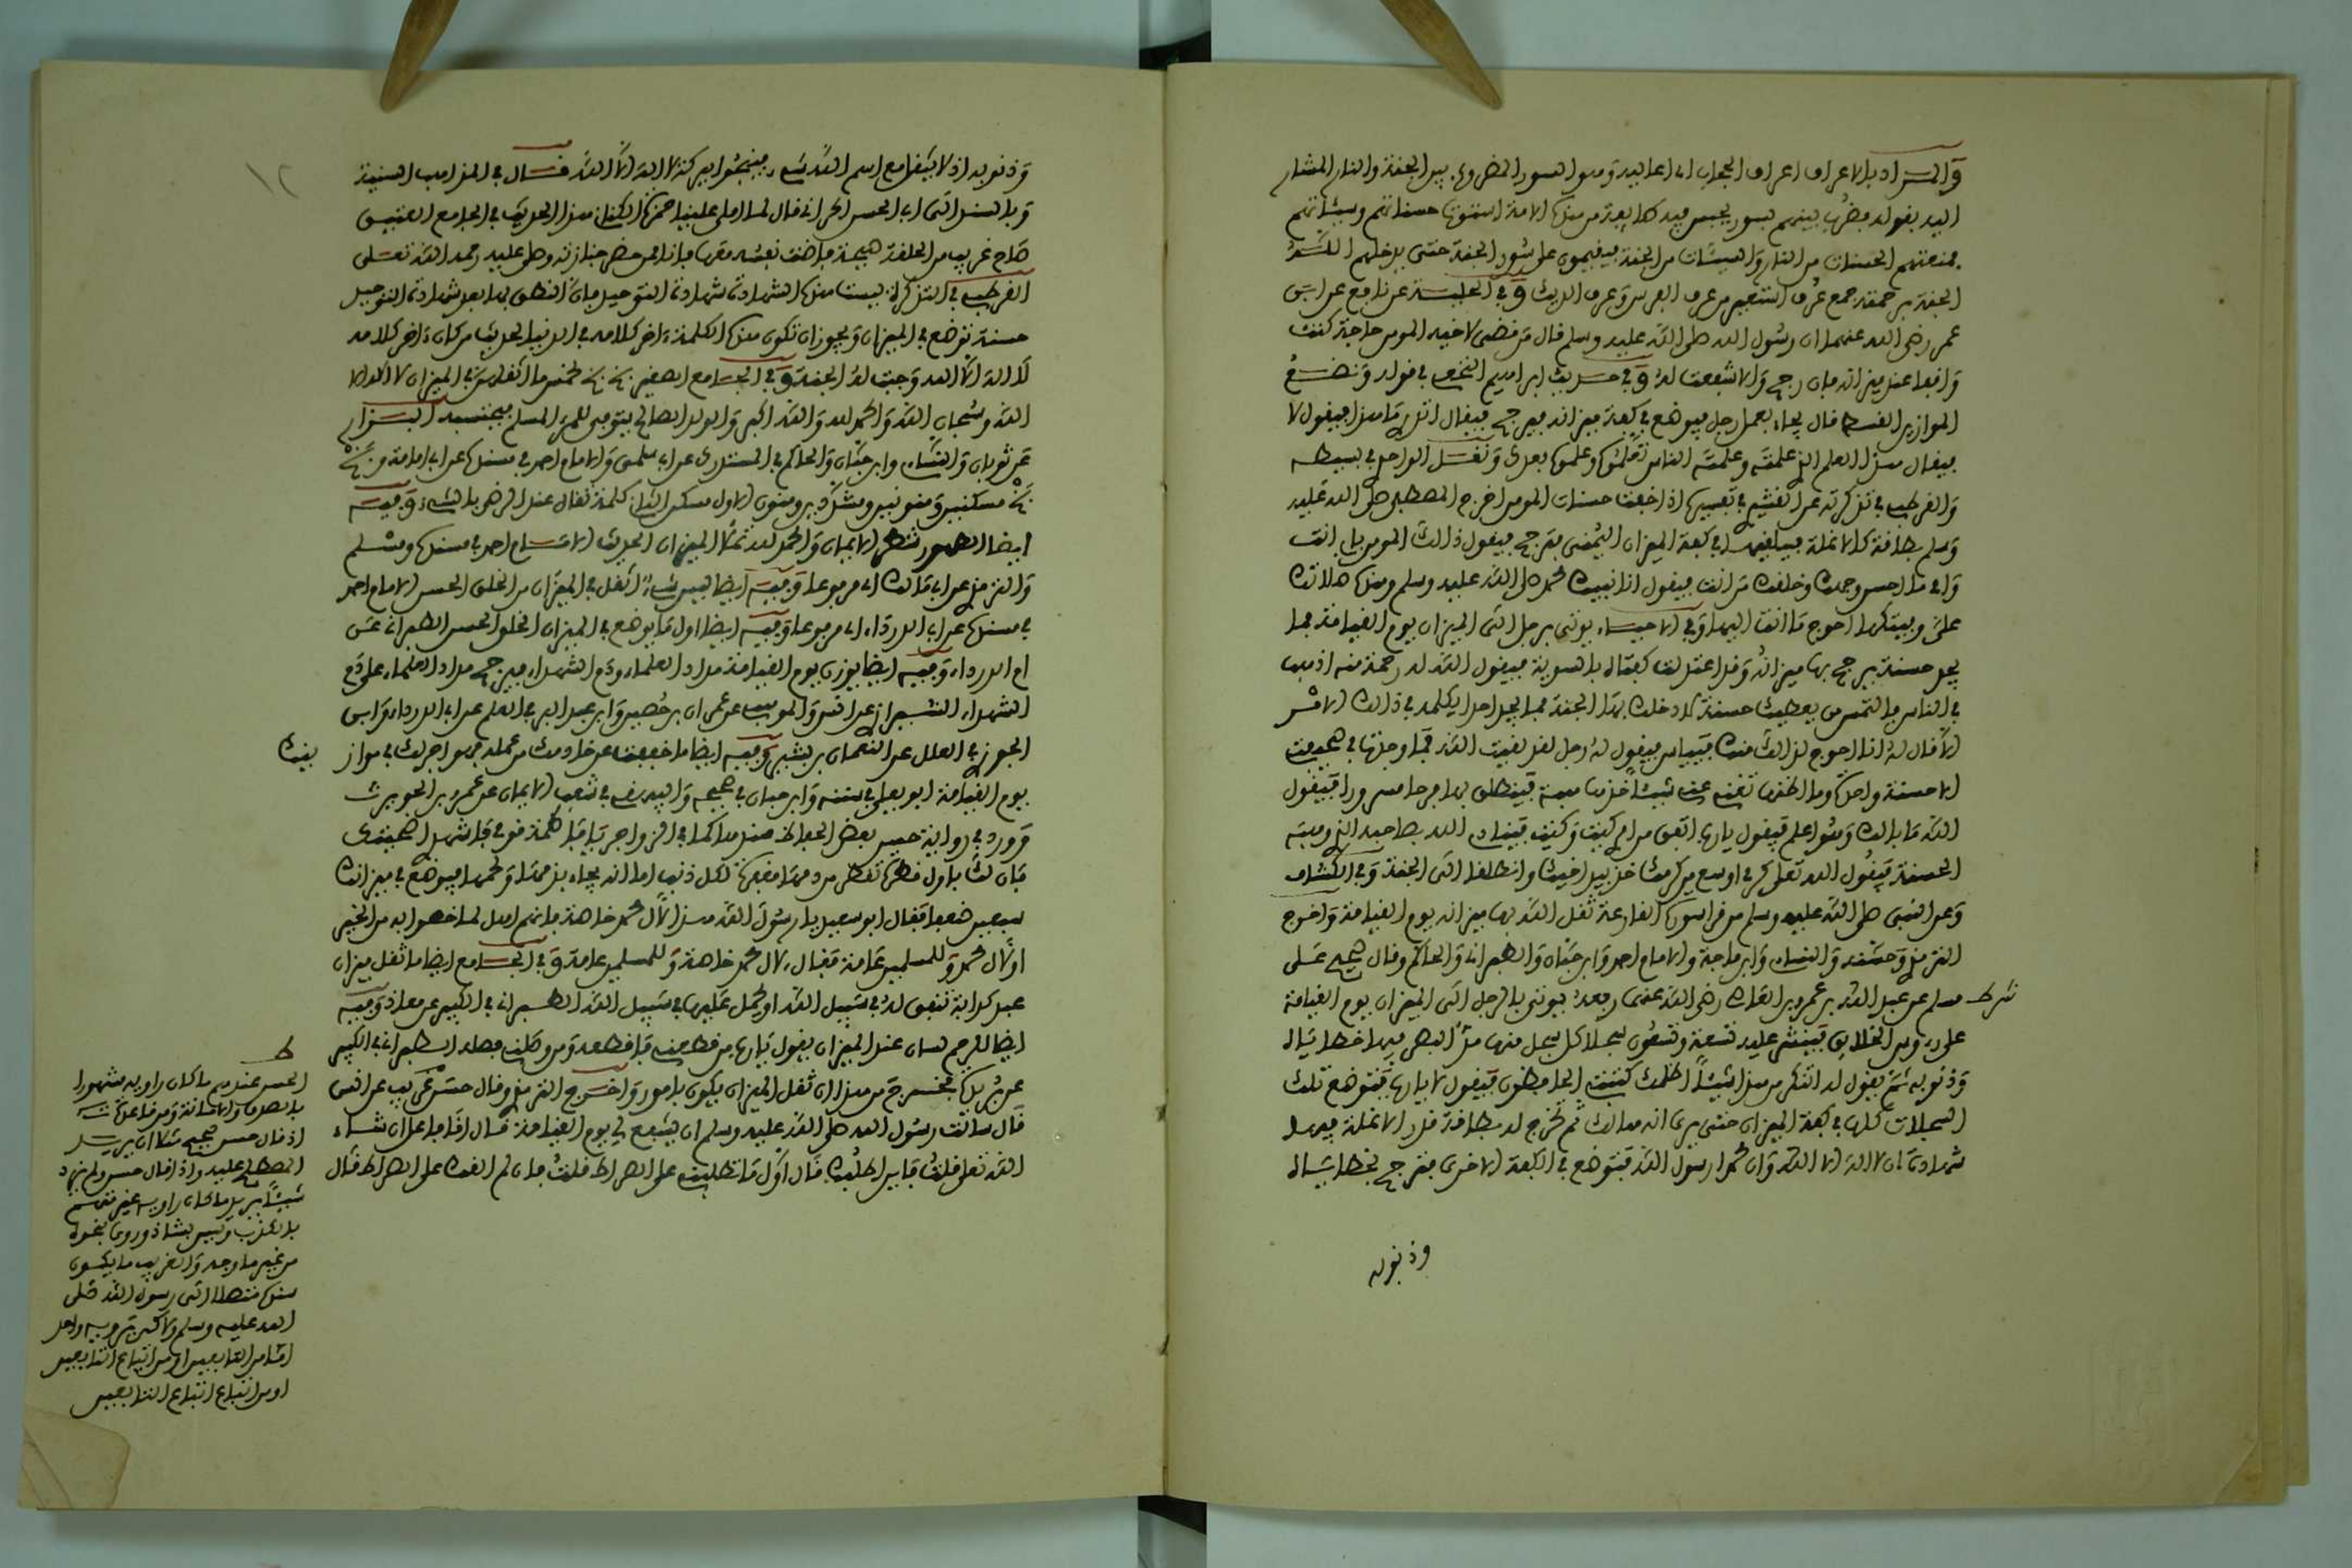 والمراد بالاعراف اعراف الحجاب اي اعاليه وهو السور المضروب بين الجنة والنار المشار
اليه بقوله فضرب بينهم بسور يحبس فيه طائفة من هذه الامة استوت حسناتهم وسيئاتهم
فمنعتهم الحسنات من النار والسيئات من الجنة فيقيمون على سور الجنة حتى يدخلهم الله
الجنة برحمته جمع عرف استعير من عرف الفرس وعرف الديك وفي الحلية عن نافع عن ابن
عمر رضي الله عنهما ان رسول الله صلى الله عليه وسلم قال من قضى لاخيه المومن حاجة كنت
واقفا عند ميزانه فان رجح والا شفعت له وفي حديث ابراهيم النخعي في قوله ونضع
الموازين القسط قال يجاء بعمل رجل فيوضع في كفة ميزانه فيرجح فيقال اتدري ما هذا فيقول لا
فيقال هذا العلم الذي علمته وعلمته الناس فعلموه وعملوا به بعدك ونقل الواحدي في بسيطه
والقرطبي في تذكرته عن القشيري في تفسيرها اذا خفت حسنات المومن اخرج المصطفى صلى الله عليه
وسلم بطاقة كالانملة فيلقيها في كفة الميزان اليمنى فترجح فيقول ذلك المومن بابي انت
وامي ما احسن وجهك وخلقك من انت فيقول انا نبيك محمد صلى الله عليه وسلم وهذه صلاتك
علي وفيتكها احوج ما انت اليها وفي الاحياء يوتى برجل الى الميزان يوم القيامة فما
يجد حسنة يرجح بها ميزانه وقد اعتدلت كفتاه بالسوية فيقول الله له رحمة منه اذهب
في الناس فالتمس من يعطيك حسنة ادخلك بها الجنة فما يجد احدا يكلمه في ذلك الامر
الا قال له انا احوج لذلك منك فيياس فيقول له رجل لقد لقيت الله فما وجدت في صحيفتي
الا حسنة واحدة وما اظنها تغني عني شيئا خذها هبة فينطلق بها فرحا مسرورا فيقول
الله ما بالك وهو اعلم فيقول يا رب اتفق من امري كيت وكيت فينادي الله بصاحبه الذي وهبه
الحسنة فيقول الله تعلى كرمي اوسع من كرمك خذ بيد اخيك وانطلقا الى الجنة وفي الكشاف
وعن النبي صلى الله عليه وسلم من قرا سورة القارعة ثقل الله بها ميزانه يوم القيامة واخرج
الترمذي وحسنه والنساءي وابن ماجة والامام احمد وابن حبان والطبراني والحاكم وقال صحيح على
شرط مسلم عن عبد الله بن عمرو بن العاص رضي الله عنه رفعه يوتى بالرجل الى الميزان يوم القيامة
على رءوس الخلائق فينشر عليه تسعة وتسعون سجلا كل سجل منها مد البصر فيها خطاياه
وذنوبه ثم يقول له اتنكر من هذا شيئا اظلمك كتبتي الحافظون فيقول لا يا رب فتوضع تلك
السجلات كلها في كفة الميزان حتى يرى انه هالك ثم تخرج له بطاقة قدر الانملة فيها
شهادة ان لا اله الا الله وان محمدا رسول الله فتوضع في الكفة الاخرى فترجح بخطاياه
وذنوبه
١٢
وذنوبه اذ لا يثقل مع اسم الله شيء فينجو ببركة لا اله الا الله قال في المواهب السنية
وبالسند الى ابي الحسن الحراني قال لما املى علينا حمزة الكناني هذا الحديث في الجامع العتيق
صاح غريب من الحلقة صيحة فاضت نفسه معها فانا ممن حضر جنازته وصلى عليه رحمه الله تعلى
القرطبي في التذكرة ليست هذه الشهادة شهادة التوحيد فان النطق بها بعد شهادة التوحيد
حسنة توضع في الميزان ويجوز ان تكون هذه الكلمة ءاخر كلامه في الدنيا لحديث من كان ءاخر كلامه
لا اله الا الله وجبت له الجنة وفي الجامع الصغير بخ بخ لخمس ما اثقلهن في الميزان لا اله الا
الله وسبحان الله والحمد لله والله اكبر والولد الصالح يتوفى للمرء المسلم فيحتسبه البزار
عن ثوبان والنساءي وابن حبان والحاكم في المستدرك عن ابي سلمى والامام احمد في مسنده عن ابي امامة وبخ
بخ مسكنين ومنونين ومشددين ومنون الاول مسكن الثاني كلمة تقال عند الرضى بالشيء وفيه
ايضا الطهور شطر الايمان والحمد لله تملا الميزان الحديث الامام احمد في مسنده ومسلم
والترمذي عن ابي مالك مرفوعا وفيه ايضا ليس شيء اثقل في الميزان من الخلق الحسن الامام احمد
في مسنده عن ابي الدرداء مرفوعا وفيه ايضا اول ما يوضع في الميزان الخلق الحسن الطبراني عن
ام الدرداء وفيه ايضا يوزن يوم القيامة مداد العلماء ودم الشهداء فيرجح مداد العلماء على دم
الشهداء الشيرازي عن انس والموهبي عن عمران بن حصين وابن عبد البر في العلم عن ابي الدرداء وابن
الجوزي في العلل عن النعمان بن بشير وفيه ايضا ما خففت عن خادمك من عمله فهو اجر لك في موازينك
يوم القيامة ابو يعلى في سننه وابن حبان في صحيحه والبيهقي في شعب الايمان عن عمرو بن الحويرث
وورد في رواية حسن بعض الحفاظ سندها كما في الزواجر يا فاطمة قومي فاشهدي اضحيتك
فان لك باول قطرة تقطر من دمها مغفرة لكل ذنب اما انه يجاء بدمها ولحمها فيوضع في ميزانك
سبعين ضعفا فقال ابو سعيد يا رسول الله هذا لال محمد خاصة فانهم اهل لما خصوا به من الخير
او لال محمد وللمسلمين عامة فقال لال محمد خاصة وللمسلمين عامة وفي الجامع ايضا ما ثقل ميزان
عبد كدابة تنفق له في سبيل الله او يحمل عليها في سبيل الله الطبراني في الكبير عن معاذ وفيه
ايضا للرحم لسان عند الميزان يقول يا رب من قطعني فاقطعه ومن وصلني فصله الطبراني في الكبير
عن بريدة فخرج من هذا ان ثقل الميزان يكون بامور واخرج الترمذي وقال حسن غريب عن انس
قال سالت رسول الله صلى الله عليه وسلم ان يشفع لي يوم القيامة قال انا فاعل ان شاء
الله تعلى قلت فاين اطلبك قال اول ما تطلبني على الصراط قلت فان لم القك على الصراط قال
ط
الحسن عندهم ما كان راويه مشهورا
بالصدق والامانة
اذ قال حسن صحيح
المصطلح عليه واذا قال حسن ولم يزد
شيئا يريد ما كان راويه غير متهم
بالكذب وليس بشاذ وروي نحوه
من غير ما وجه والغريب ما يكون
سنده متصلا الى رسول الله صلى
الله عليه وسلم ولاكن يرويه واحد
اما من التابعين او من اتباع التابعين
او من اتباع اتباع التابعين